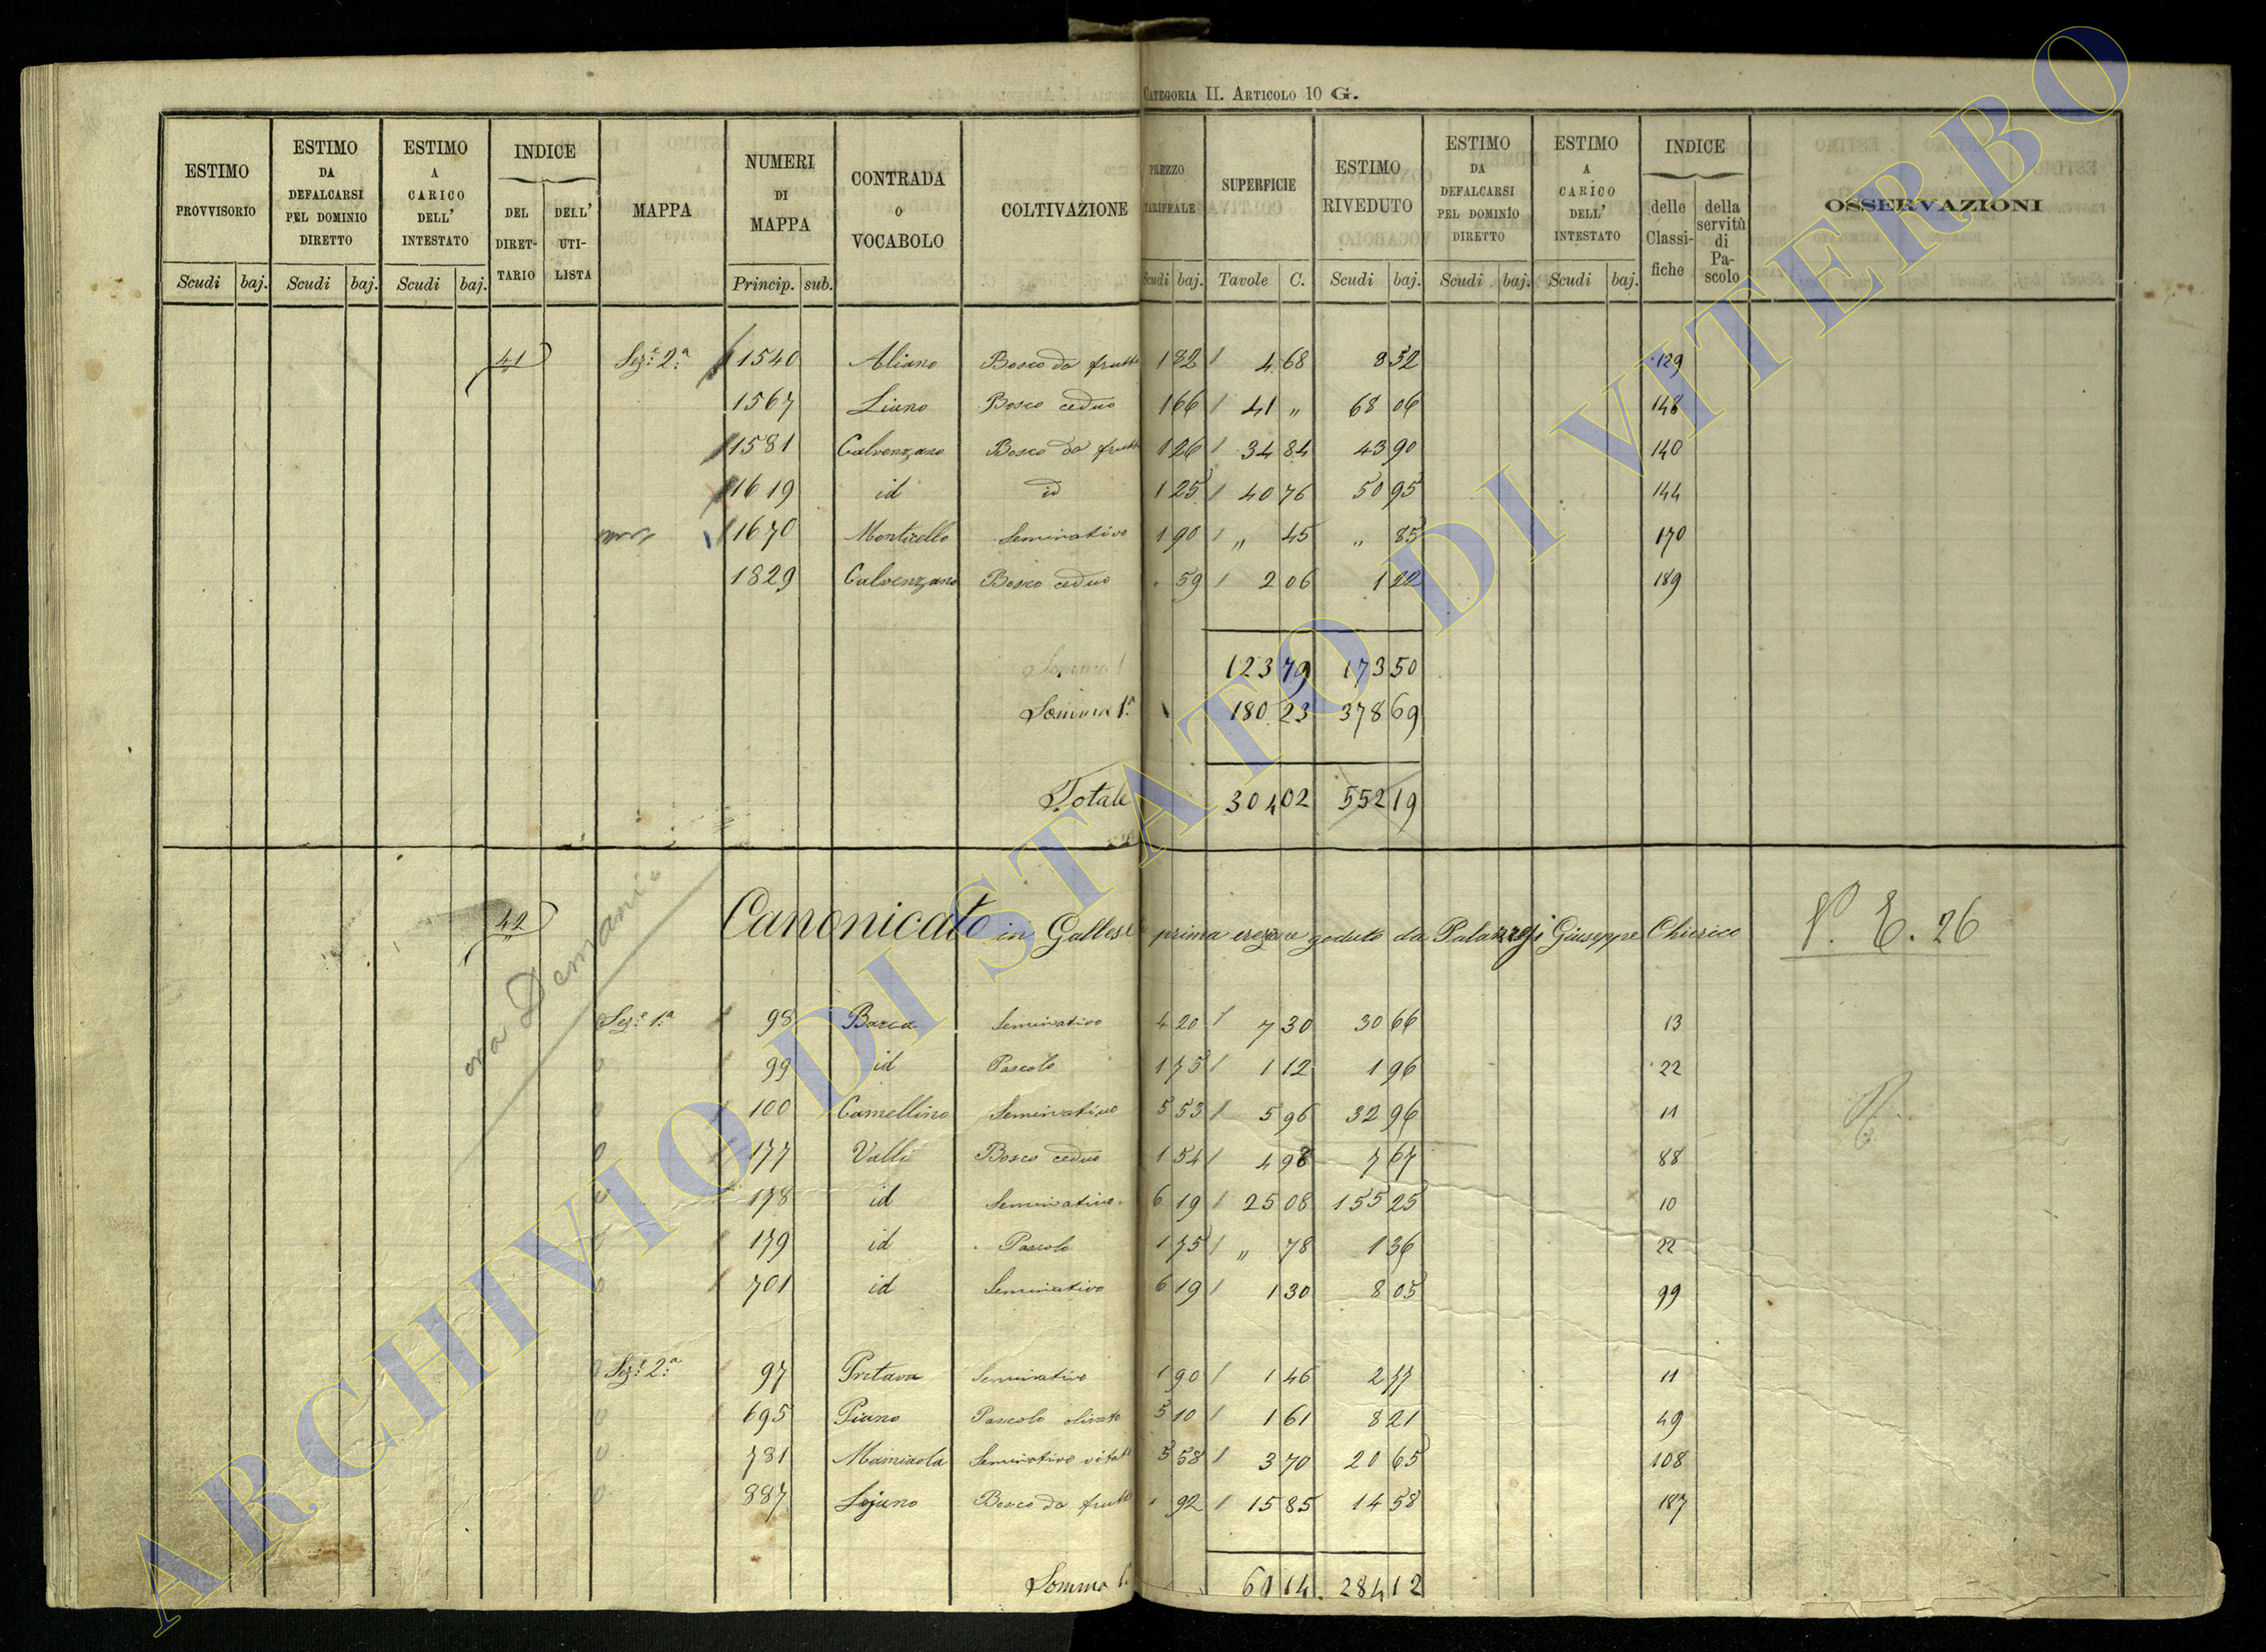 CATEGORIA II. ARTICOLO 10 G.
ESTIMO PROVVISORIO | ESTIMO DA DEFALCARSI PEL DOMINIO DIRETTO | ESTIMO A CARICO DELL' INTESTATO | INDICE DEL DIRET-TARIO | DELL' UTI-LISTA | MAPPA | NUMERI DI MAPPA | CONTRADA O VOCABOLO | COLTIVAZIONE | PREZZO TARIFFALE | SUPERFICIE | ESTIMO RIVEDUTO | ESTIMO DA DEFALCARSI PEL DOMINIO DIRETTO | ESTIMO A CARICO DELL' INTESTATO | INDICE delle Classi-fiche | della servitù di Pa-scolo | OSSERVAZIONI
Scudi baj. Scudi baj. Scudi baj. Princip. sub. Scudi baj. Tavole C. Scudi baj. Scudi baj. Scudi baj.
41 Sez.e 2.a 1540 Aliano Bosco da frutto 1 82 4 68 8 52 129
1567 Liano Bosco ceduo 1 66 41 " 68 06 148
1581 Calvenzano Bosco da frutto 1 26 34 84 43 90 140
1619 id id 1 25 40 76 50 95 144
1670 Monticello Seminativo 1 90 " 45 " 85 170
1829 Calvenzano Bosco ceduo 59 2 06 1 22 189
123 79 173 50
Somma 1.a 180 23 378 69
Totale 304 02 552 19
42 Canonicato in Gallese prima erezione goduto da Palazzesi Giuseppe Chierico P. E. 26
ora Demanio
Sez.e 1.a 98 Barca Seminativo 4 20 7 30 30 66 13
99 id Pascolo 1 75 1 12 1 96 22
100 Camellino Seminativo 5 53 5 96 32 96 11
177 Valli Bosco ceduo 1 54 4 98 7 67 88
178 id Seminativo 6 19 25 08 155 25 10
179 id Pascolo 1 75 " 78 1 36 22
701 id Seminativo 6 19 1 30 8 05 99
Sez.e 2.a 97 Pretara Seminativo 1 90 1 46 2 77 11
695 Piano Pascolo olivato 5 10 1 61 8 21 49
781 Seminativo vitato 5 58 3 70 20 65 108
887 Lojano Bosco da frutto 92 15 85 14 58 187
Somma 1.a 69 14 284 12
ARCHIVIO DI STATO DI VITERBO